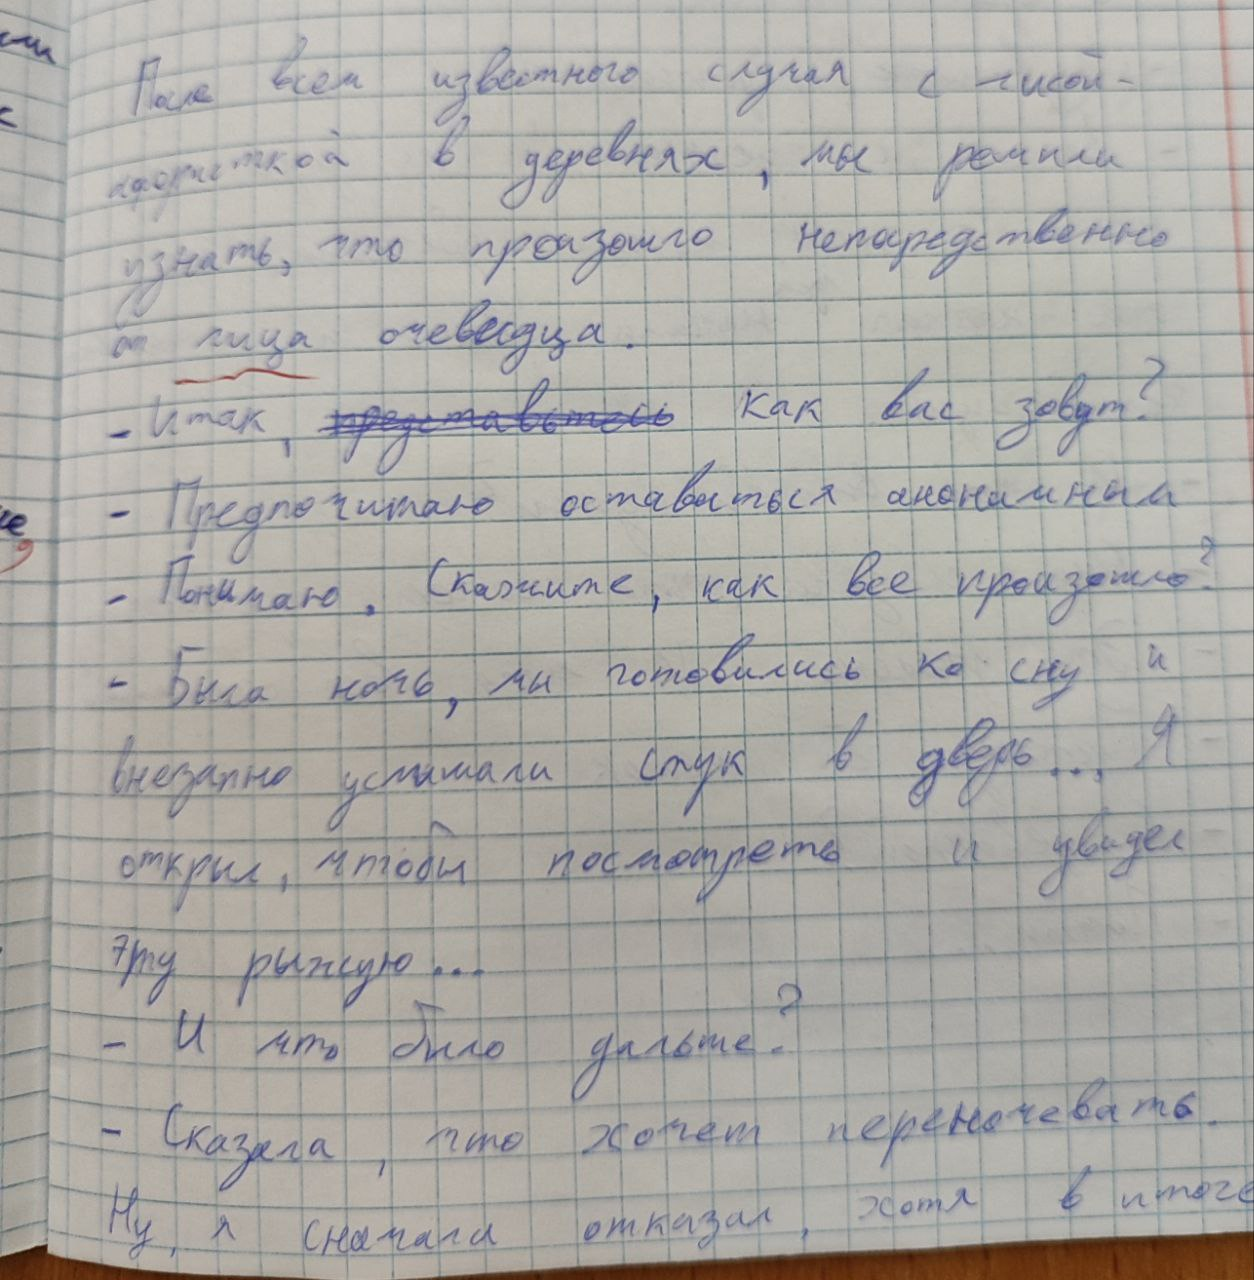 После всем известного случая с лисой-
аферисткой в деревнях, мы решили
узнать, что произошло непосредственно
от лица очевидца.
- Итак, ~~представьтесь~~ как вас зовут?
- Предпочитаю оставаться анонимным
- Понимаю. Скажите, как все произошло?
- Была ночь, мы готовились ко сну и
внезапно услышали стук в дверь... Я
открыл, чтобы посмотреть и увидел
эту рыжую...
- И что было дальше?
- Сказала, что хочет переночевать.
Ну, я сначала отказал, хотя в итоге